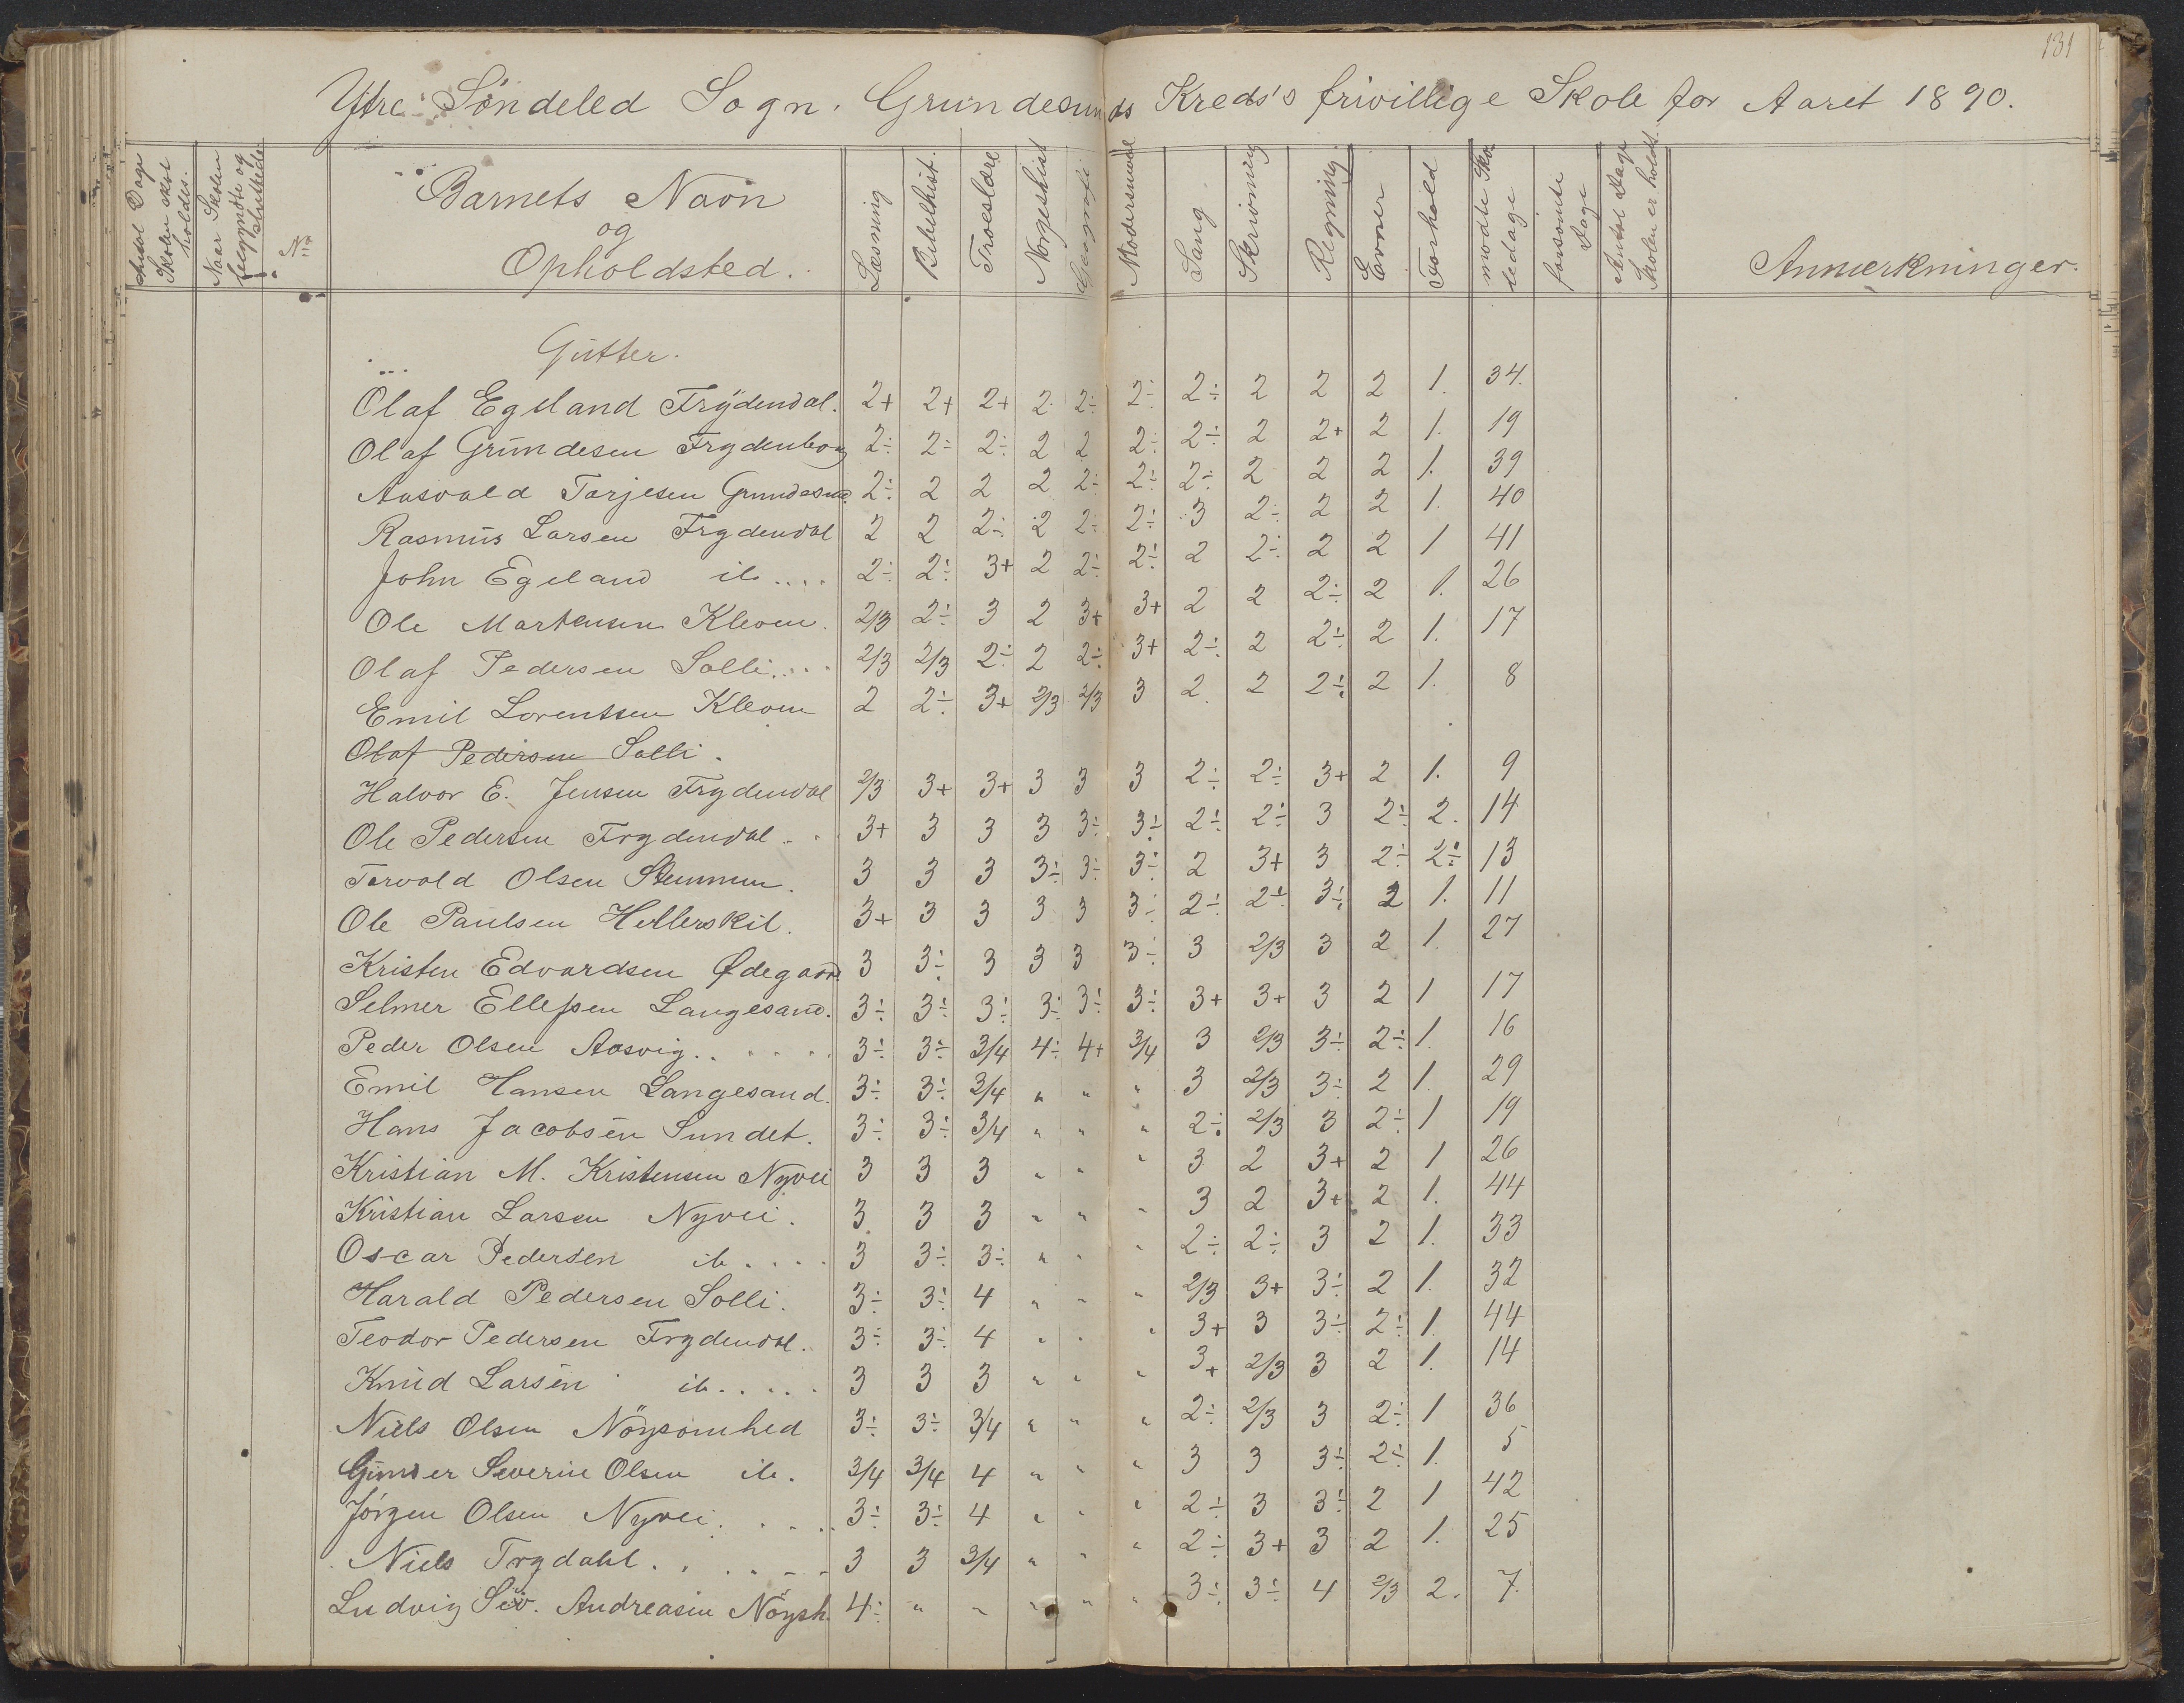 131
Ytre Söndeled Sogn. Grundesunds Kreds's frivillige Skole for Aaret 1890.
Antal Dage Skolen skal holdes.
Naar Skolen begyndte og sluttede.
No
Barnets Navn
og
Opholdsted.
Læsning
Bibelhist.
Troeslære
Norgeshist
Geografi
Modersmaal
Sang
Skrivning
Regning
Evner
Forhold
mødte Skoledage
forsømte Dage
Antal Dage Skolen er holdt.
Anmerkninger.
Gutter.
Olaf Egeland Frydendal. 2+ 2+ 2+ 2 2÷ 2÷ 2÷ 2 2 2 1. 34.
Olaf Grundesen Frydenborg 2÷ 2÷ 2÷ 2 2 2÷ 2÷ 2 2+ 2 1. 19
Aasvald Tarjesen Grundesund. 2÷ 2 2 2 2÷ 2÷ 2÷ 2 2 2 1. 39
Rasmus Larsen Frydendal 2 2 2÷ 2 2÷ 2÷ 3 2÷ 2 2 1. 40
John Egeland ib.... 2÷ 2÷ 3+ 2 2÷ 2÷ 2 2÷ 2 2 1 41
Ole Martensen Kleven. 2/3 2÷ 3 2 3+ 3+ 2 2 2÷ 2 1. 26
Olaf Pedersen Solli.... 2/3 2/3 2÷ 2 2÷ 3+ 2÷ 2 2÷ 2 1. 17
Emil Lorentsen Kleven 2 2÷ 3+ 2/3 2/3 3 2. 2 2÷ 2 1. 8
Olaf Pedersen Solli.
Halvor E. Jensen Frydendal 2/3 3+ 3+ 3 3 3 2÷ 2÷ 3+ 2 1. 9
Ole Pedersen Frydendal.. 3+ 3 3 3 3÷ 3÷ 2÷ 2÷ 3 2÷ 2. 14
Torvald Olsen Stemmen. 3 3 3 3÷ 3÷ 3÷ 2 3+ 3 2÷ 2÷ 13
Ole Paulsen Hellerskil. 3+ 3 3 3 3 3÷ 2÷ 2÷ 3÷ 2 1. 11
Kristen Edvardsen Ødegaard. 3 3÷ 3 3 3 3÷ 3 2/3 3 2 1. 27
Selmer Ellefsen Langesand. 3÷ 3÷ 3÷ 3÷ 3÷ 3÷ 3+ 3+ 3 2 1 17
Peder Olsen Aasvig...... 3÷ 3÷ 3/4 4÷ 4+ 3/4 3 2/3 3÷ 2÷ 1. 16
Emil Hansen Langesand. 3÷ 3÷ 3/4 " " " 3 2/3 3÷ 2 1. 29
Hans Jacobsen Sundet. 3÷ 3÷ 3/4 " " " 2÷ 2/3 3 2÷ 1 19
Kristian M. Kristensen Nyvei 3 3 3 " " " 3 2 3+ 2 1 26
Kristian Larsen Nyvei. 3 3 3 " " " 3 2 3+ 2 1. 44
Oscar Pedersen ib.... 3 3÷ 3÷ " " " 2÷ 2÷ 3 2 1. 33
Harald Pedersen Solli. 3÷ 3÷ 4 " " " 2/3 3+ 3÷ 2 1. 32
Teodor Pedersen Frydendal. 3÷ 3÷ 4 " " " 3+ 3 3÷ 2÷ 1. 44
Knud Larsen ib..... 3 3 3 " " " 3+ 2/3 3 2 1. 14
Niels Olsen Nöysomhed 3÷ 3÷ 3/4 " " " 2÷ 2/3 3 2÷ 1 36
Gunder Severin Olsen ib. 3/4 3/4 4 " " " 3 3 3÷ 2÷ 1. 5
Jörgen Olsen Nyvei..... 3÷ 3÷ 4 " " " 2÷ 3 3÷ 2 1 42
Niels Trydahl...... 3 3 3/4 " " " 2÷ 3+ 3 2 1. 25
Ludvig Sev. Andreasen Nöysh. 4÷ " " " " " 3÷ 3÷ 4 2/3 2. 7.